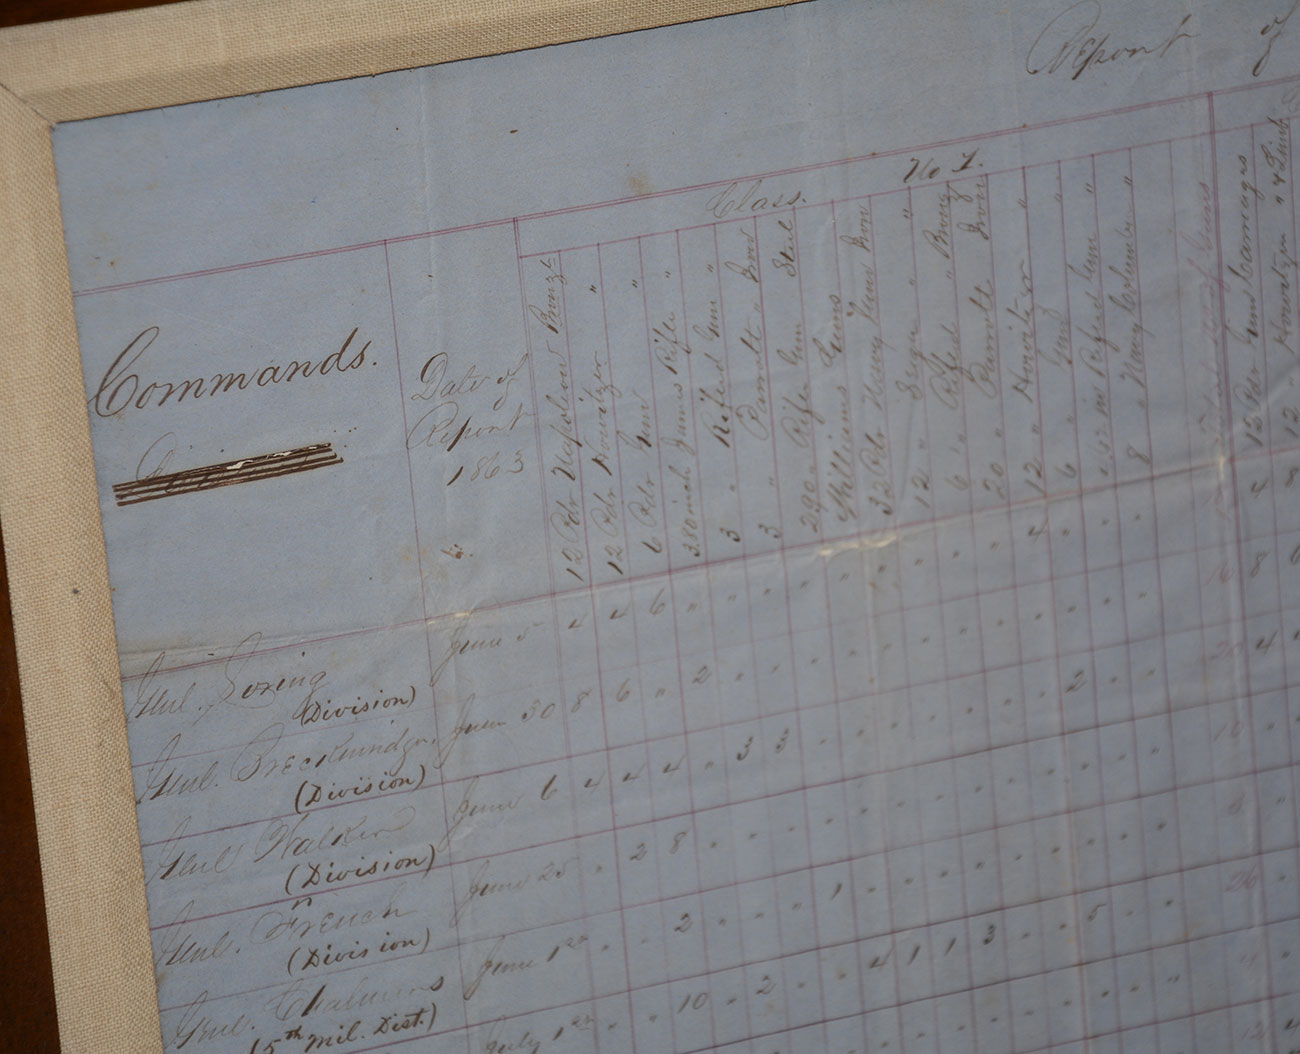 Report of
Class. No 1.
Commands.
Date of
Report
1863
12 Pdr Napoleon Bronze
12 Pdr Howitzer "
6 Pdr Gun "
3.80 inch James Rifle "
3 " Rifled Gun "
3 " Parrott " Iron
2.90 " Rifle Gun Steel
Williams Guns
32 Pdr Heavy Gun Iron
12 " " "
6 " Rifled " Bronze
20 " Parrott Iron
12 " Howitzer "
6 " Gun "
" in Rifled Gun "
8 " Navy Columbd "
Total No of Guns
12 Pdr Gun Carriages
12 " Howitzer " & Limb
Genl. Loring June 5 4 4 6 " " " " " " " " " 4 " " "
(Division)
Genl. Breckinridge June 30 8 6 " 2 " " " " " " " " " " " "
(Division)
Genl Walker June 6 4 4 4 " 3 3 " " " " " " " 2 " "
(Division)
Genl. French June 25 " 2 8 " " " " " " " " " " " " "
(Division)
Genl. Chalmers June 1st " " 2 " " " 1 " " " " " " " " "
(5th Mil. Dist.)
July 1st " " 10 " 2 " " 4 1 1 3 " " 5 " "